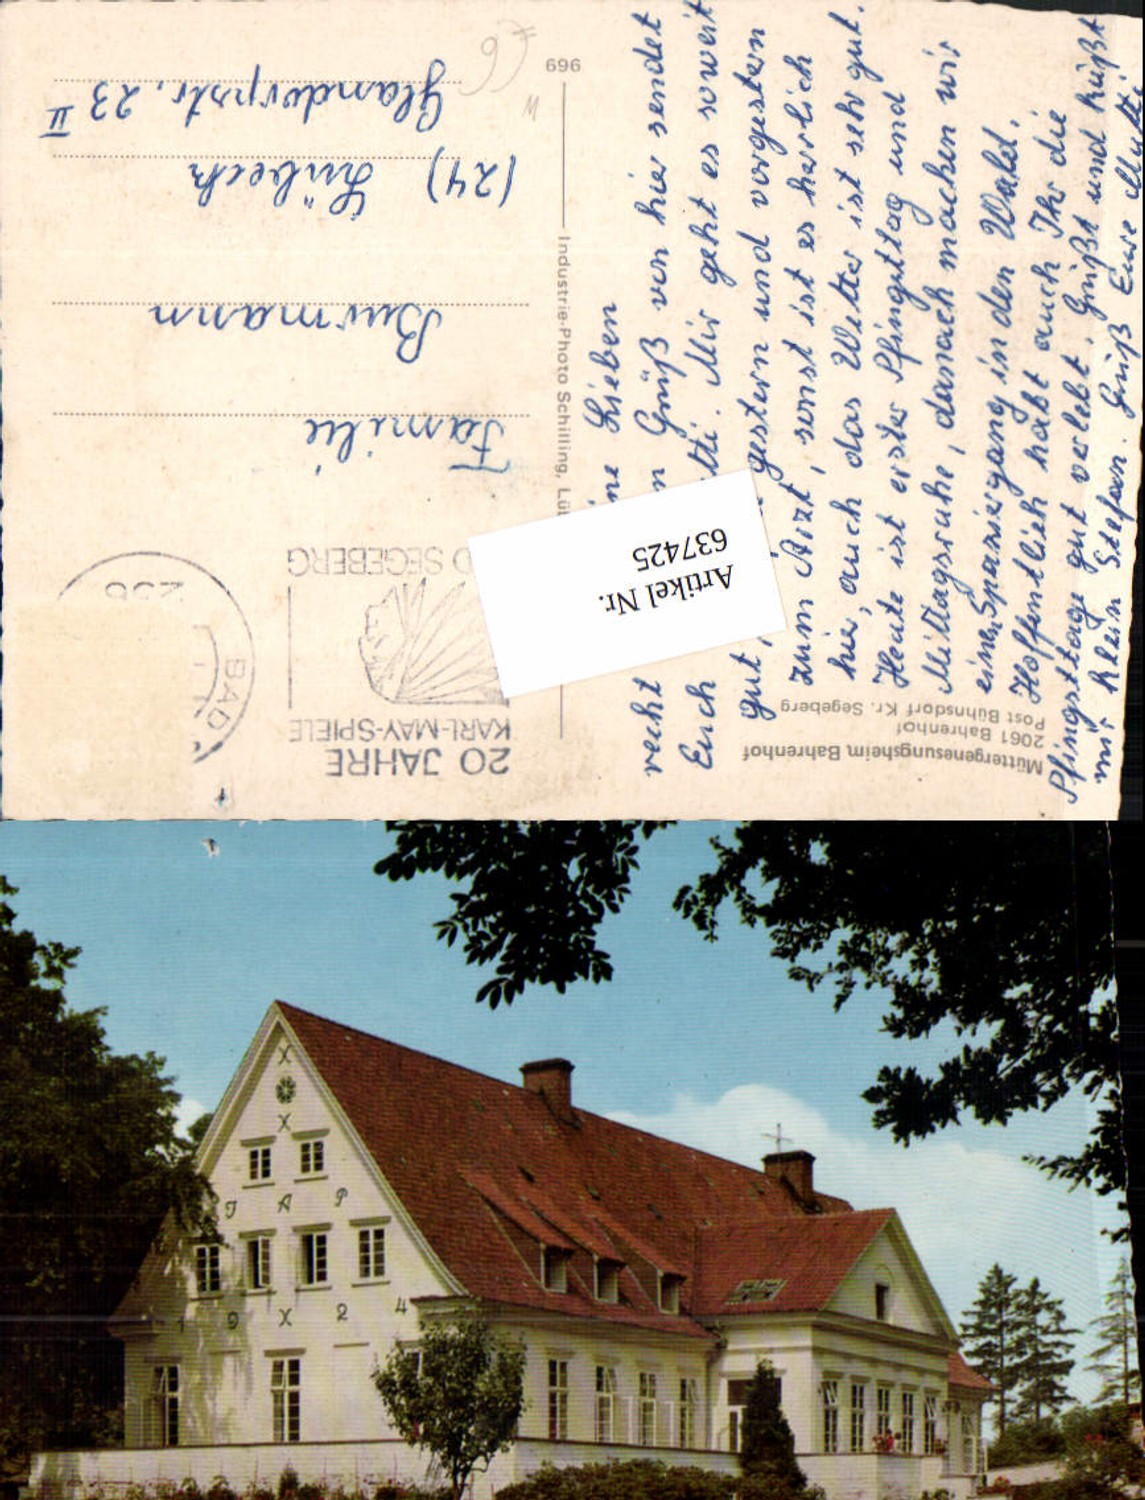 Müttergenesungsheim Bahrenhof
2061 Bahrenhof
Post Bühnsdorf Kr. Segeberg
Lieben
recht Grüß von hier sendet
Euch Mir geht es soweit
gut, gestern und vorgestern
zum Arzt, sonst ist es herrlich
hier, auch das Wetter ist sehr gut.
Heute ist erster Pfingsttag und
Mittagsruhe, danach machen wir
einen Spaziergang in den Wald.
Hoffentlich habt auch Ihr die
Pfingsttage gut verlebt. Grüßt und küßt
mir klein Stefan. Gruß Eure Mutti
Industrie-Photo Schilling,
969
20 JAHRE
KARL-MAY-SPIELE
SEGEBERG
BAD
Familie
Burmann
(24) Lübeck
Glandorpstr. 23 II
Artikel Nr.
637425
X
X
J A P
1 9 X 2 4